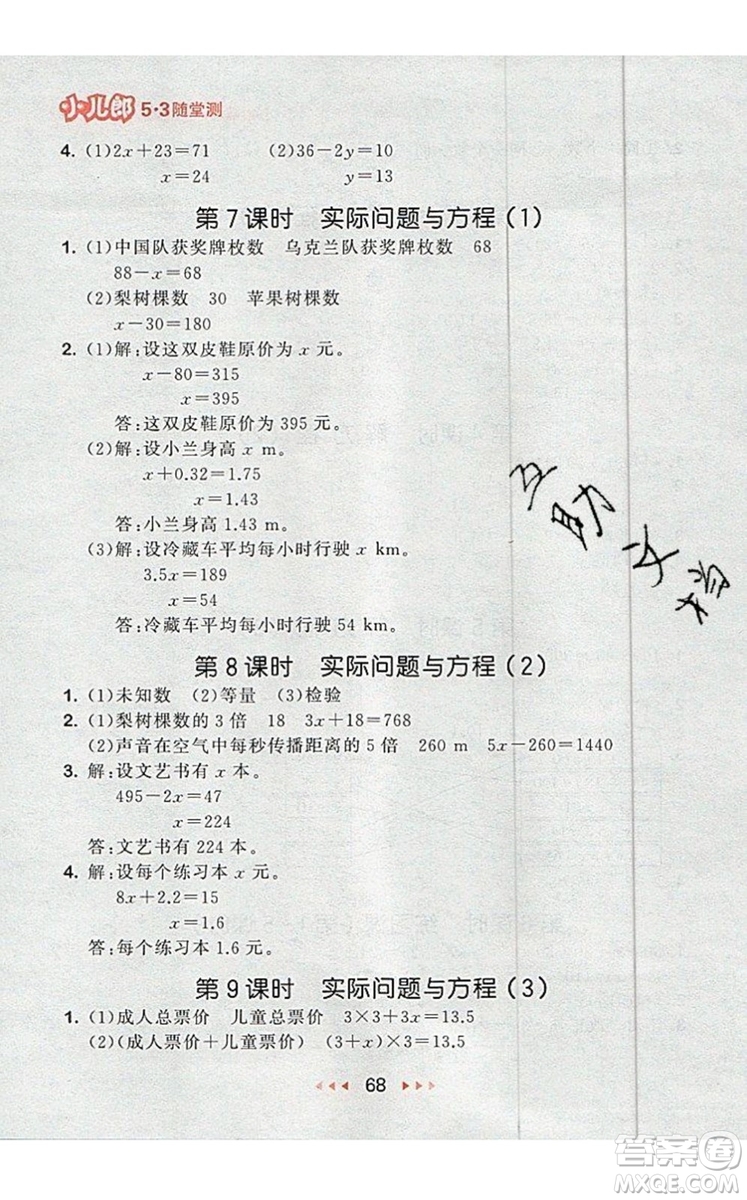 小儿郎 5·3随堂测
4. (1)2x+23=71 (2)36-2y=10
x=24 y=13
第7课时 实际问题与方程(1)
1. (1)中国队获奖牌枚数 乌克兰队获奖牌枚数 68
88-x=68
(2)梨树棵数 30 苹果树棵数
x-30=180
2. (1)解:设这双皮鞋原价为 x 元。
x-80=315
x=395
答:这双皮鞋原价为 395 元。
(2)解:设小兰身高 x m。
x+0.32=1.75
x=1.43
答:小兰身高 1.43 m。
(3)解:设冷藏车平均每小时行驶 x km。
3.5x=189
x=54
答:冷藏车平均每小时行驶 54 km。
第8课时 实际问题与方程(2)
1. (1)未知数 (2)等量 (3)检验
2. (1)梨树棵数的 3 倍 18 3x+18=768
(2)声音在空气中每秒传播距离的 5 倍 260 m 5x-260=1440
3. 解:设文艺书有 x 本。
495-2x=47
x=224
答:文艺书有 224 本。
4. 解:设每个练习本 x 元。
8x+2.2=15
x=1.6
答:每个练习本 1.6 元。
第9课时 实际问题与方程(3)
1. (1)成人总票价 儿童总票价 3×3+3x=13.5
(2)(成人票价+儿童票价) (3+x)×3=13.5
68
互助文档
答案圈
MXQE.COM